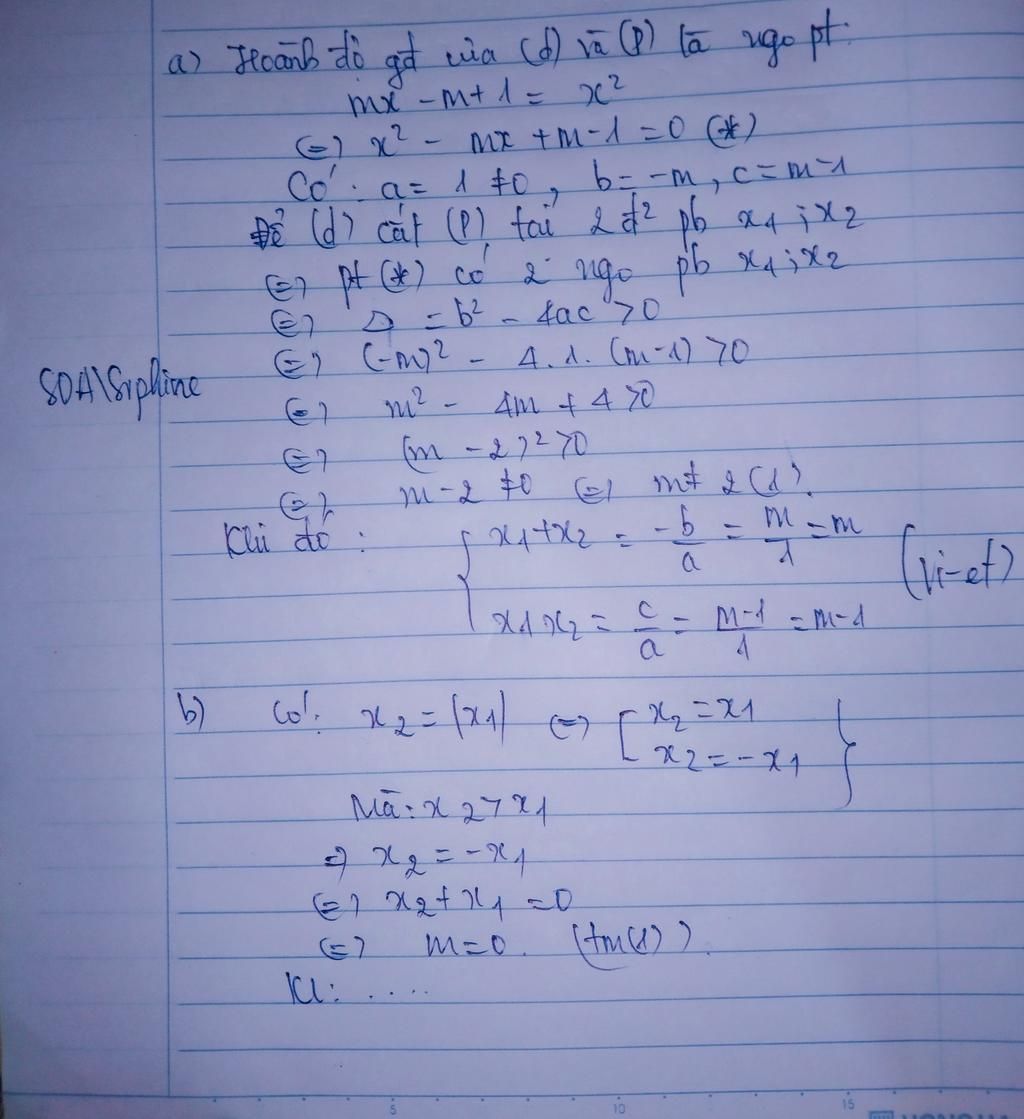 a) Hoành độ gđ của (d) và (P) là ngo pt:
mx - m + 1 = x²
(=) x² - mx + m - 1 = 0 (*)
Có: a = 1 ≠ 0, b = -m, c = m - 1
Để (d) cắt (P) tại 2 đ² pb x1 ; x2
(=) pt (*) có 2 ngo pb x1 ; x2
(=) Δ = b² - 4ac > 0
(=) (-m)² - 4.1.(m-1) > 0
SDA\Srphine
(=) m² - 4m + 4 > 0
(=) (m - 2)² > 0
(=) m - 2 ≠ 0 (=) m ≠ 2 (1).
Khi đó: { x1 + x2 = -b/a = m/1 = m
(Vi-et)
x1x2 = c/a = m-1/1 = m-1
b) Có: x2 = |x1| (=) [ x2 = x1
x2 = -x1 }
Mà: x2 > x1
=) x2 = -x1
(=) x2 + x1 = 0
(=) m = 0. (tm(1)).
Kl: .....
5 10 15